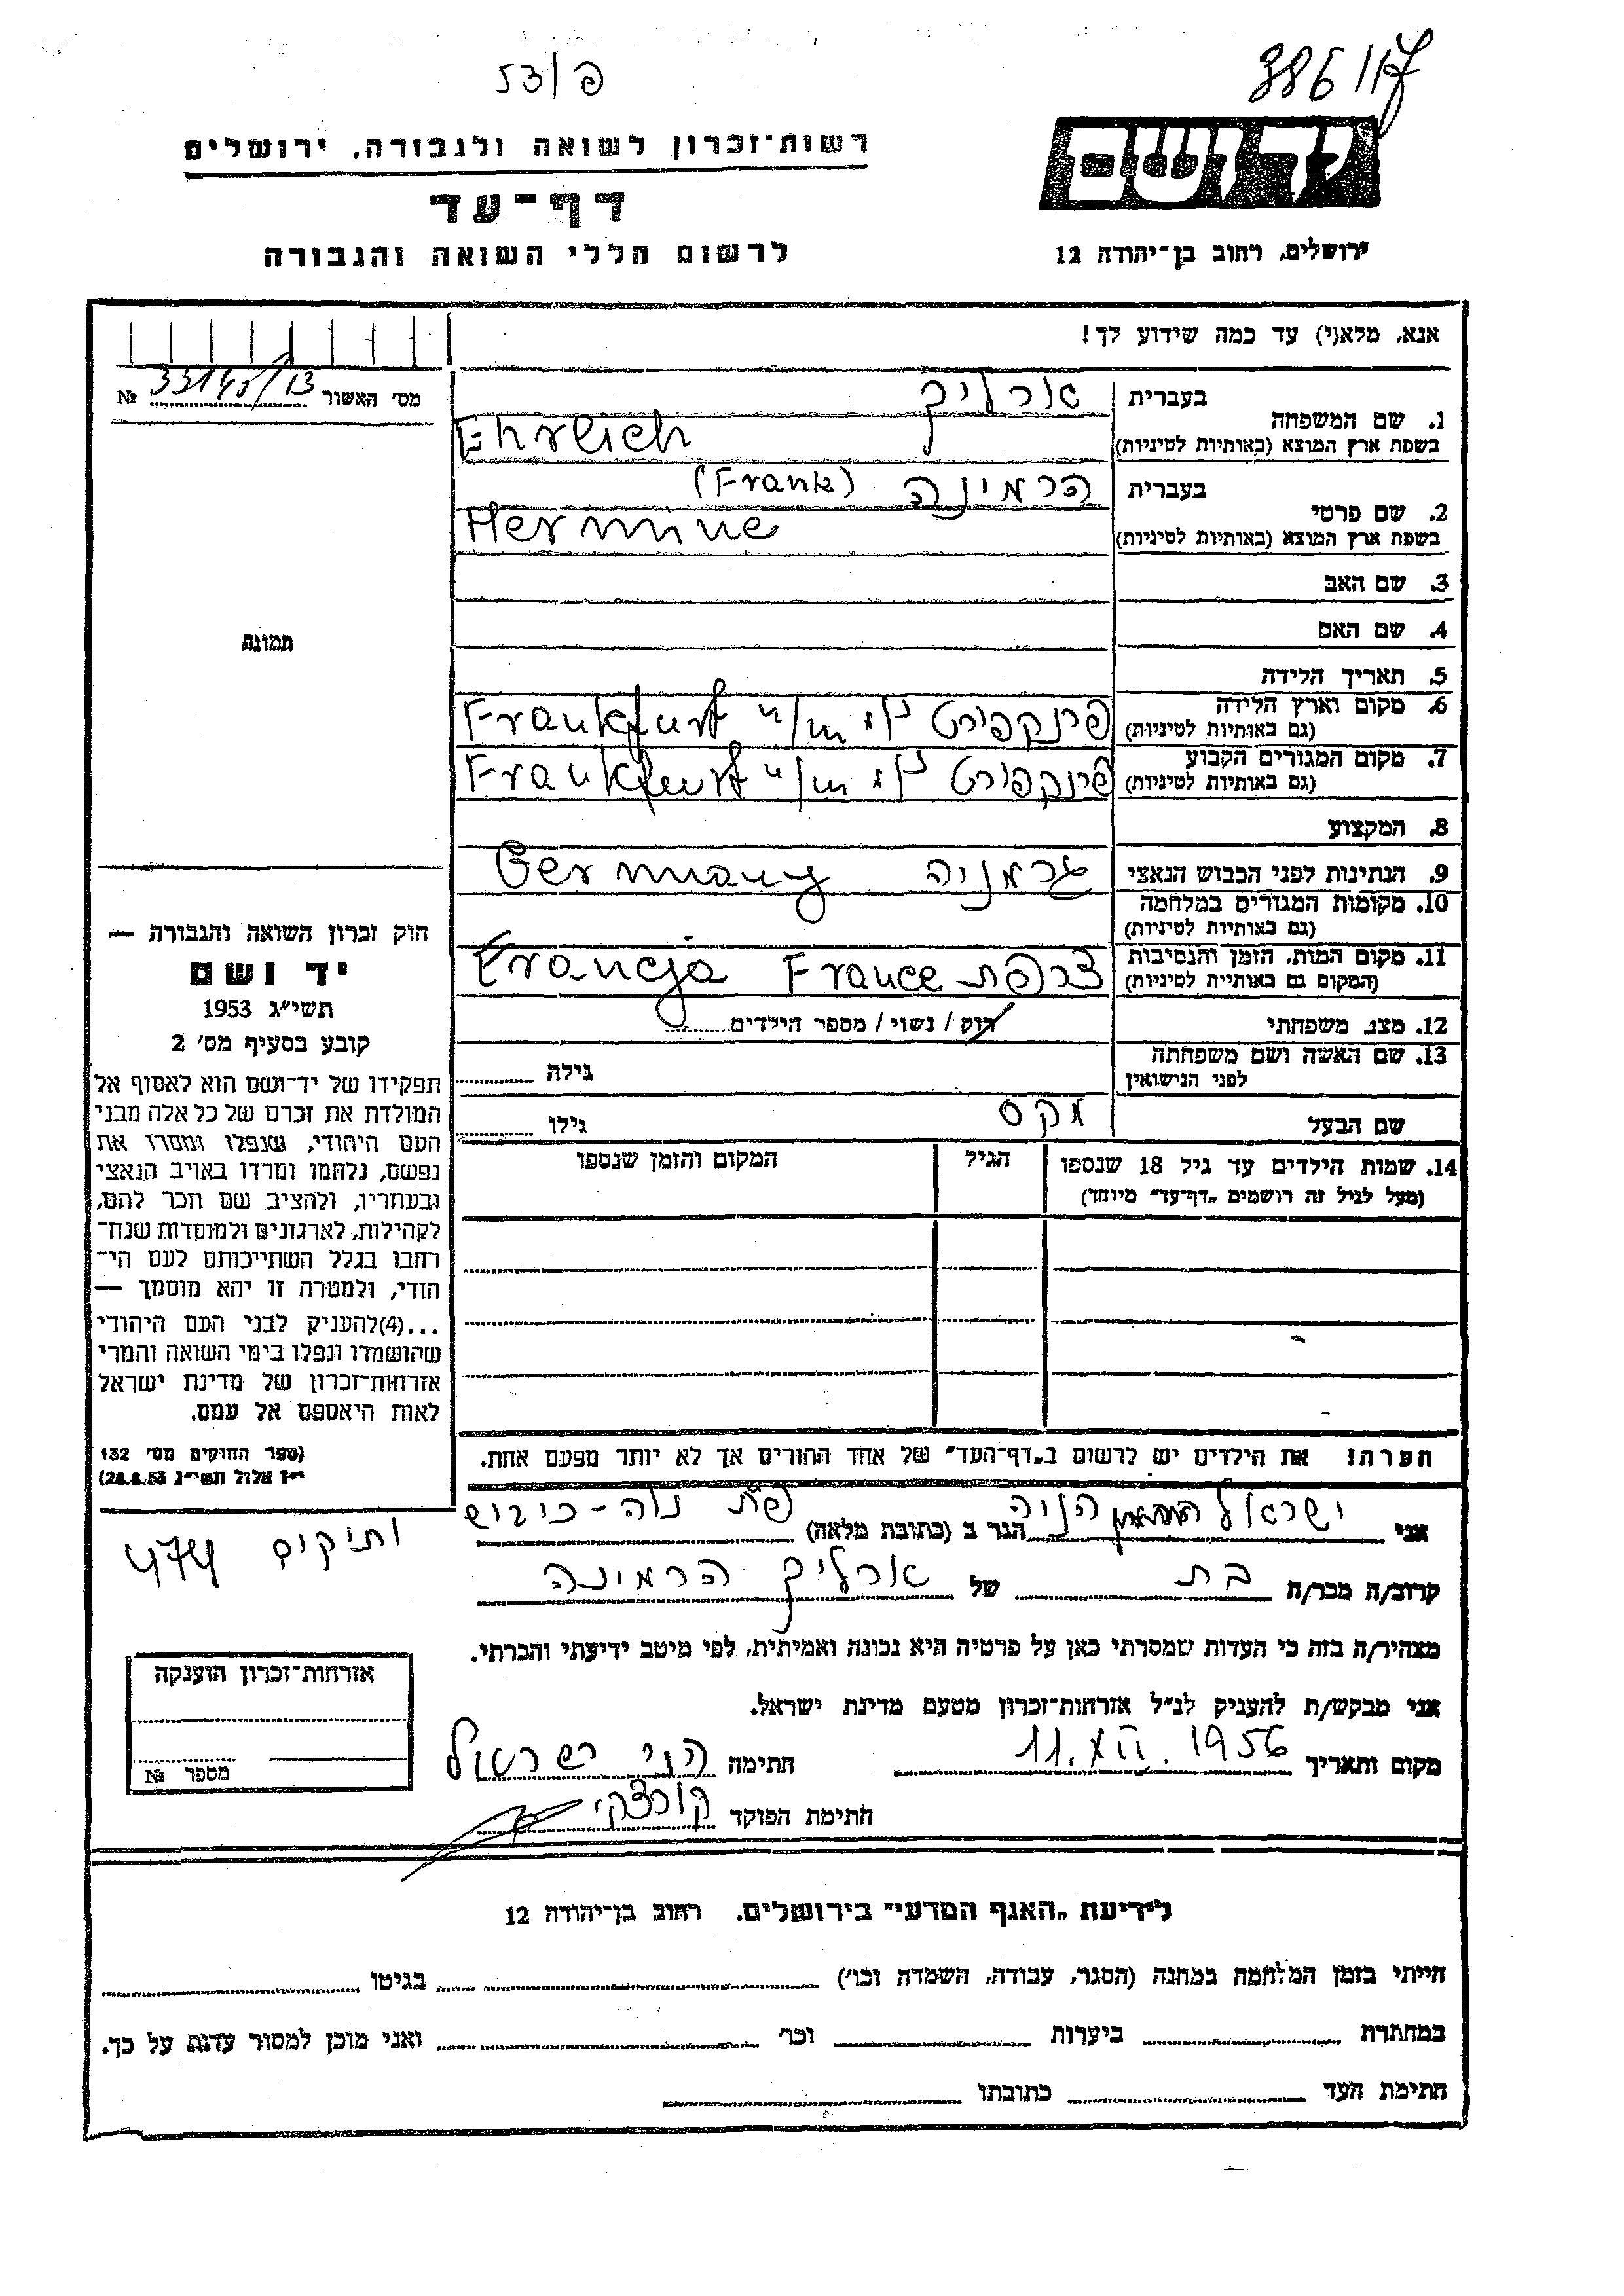 53/פ
386/17
רשות־זכרון לשואה ולגבורה, ירושלים
יד ושם
דף־עד
לרשום חללי השואה והגבורה
ירושלים, רחוב בן־יהודה 12
אנא, מלא(י) עד כמה שידוע לך!
מס׳ האשור 33145/13 №
1. שם המשפחה
בעברית ארליך
בשפת ארץ המוצא (באותיות לטיניות) Ehrlich
2. שם פרטי
בעברית הרמינה (Frank)
בשפת ארץ המוצא (באותיות לטיניות) Hermine
3. שם האב
4. שם האם
5. תאריך הלידה
6. מקום וארץ הלידה
(גם באותיות לטיניות) פרנקפורט Frankfurt
7. מקום המגורים הקבוע
(גם באותיות לטיניות) פרנקפורט Frankfurt
8. המקצוע
9. הנתינות לפני הכבוש הנאצי גרמניה Germany
10. מקומות המגורים במלחמה
(גם באותיות לטיניות)
11. מקום המות, הזמן והנסיבות
(המקום גם באותיות לטיניות) צרפת France Francja
12. מצב משפחתי רוק / נשוי / מספר הילדים
13. שם האשה ושם משפחתה
לפני הנישואין גילה
שם הבעל מקס גילו
14. שמות הילדים עד גיל 18 שנספו הגיל המקום והזמן שנספו
(מעל לגיל זה רושמים „דף־עד״ מיוחד)
תמונה
חוק זכרון השואה והגבורה —
יד ושם
תשי״ג 1953
קובע בסעיף מס׳ 2
תפקידו של יד־ושם הוא לאסוף אל
המולדת את זכרם של כל אלה מבני
העם היהודי, שנפלו ומסרו את
נפשם, נלחמו ומרדו באויב הנאצי
ובעוזריו, ולהציב שם וזכר להם,
לקהילות, לארגונים ולמוסדות שנח־
רבו בגלל השתייכותם לעם הי־
הודי, ולמטרה זו יהא מוסמך —
...(4)להעניק לבני העם היהודי
שהושמדו ונפלו בימי השואה והמרי
אזרחות־זכרון של מדינת ישראל
לאות היאספם אל עמם.
(ספר החוקים מס׳ 132
י״ז אלול תשי״ג 28.8.53)
הערה! את הילדים יש לרשום ב„דף־העד״ של אחד ההורים אך לא יותר מפעם אחת.
אני ישראל הניה הגר ב (כתובת מלאה) נוה־כיבוש
ותיקים 474
קרוב/ה מכר/ה בת של ארליך הרמינה
מצהיר/ה בזה כי העדות שמסרתי כאן על פרטיה היא נכונה ואמיתית, לפי מיטב ידיעתי והכרתי.
אני מבקש/ת להעניק לנ״ל אזרחות־זכרון מטעם מדינת ישראל.
מקום ותאריך 11.XII.1956 חתימה הני ישראל
חתימת הפוקד
אזרחות־זכרון הוענקה
מספר №
לידיעת „האגף המדעי״ בירושלים, רחוב בן־יהודה 12
הייתי בזמן המלחמה במחנה (הסגר, עבודה, השמדה וכו׳) בגיטו
במחתרת ביערות וכו׳ ואני מוכן למסור עדות על כך.
חתימת העד כתובתו